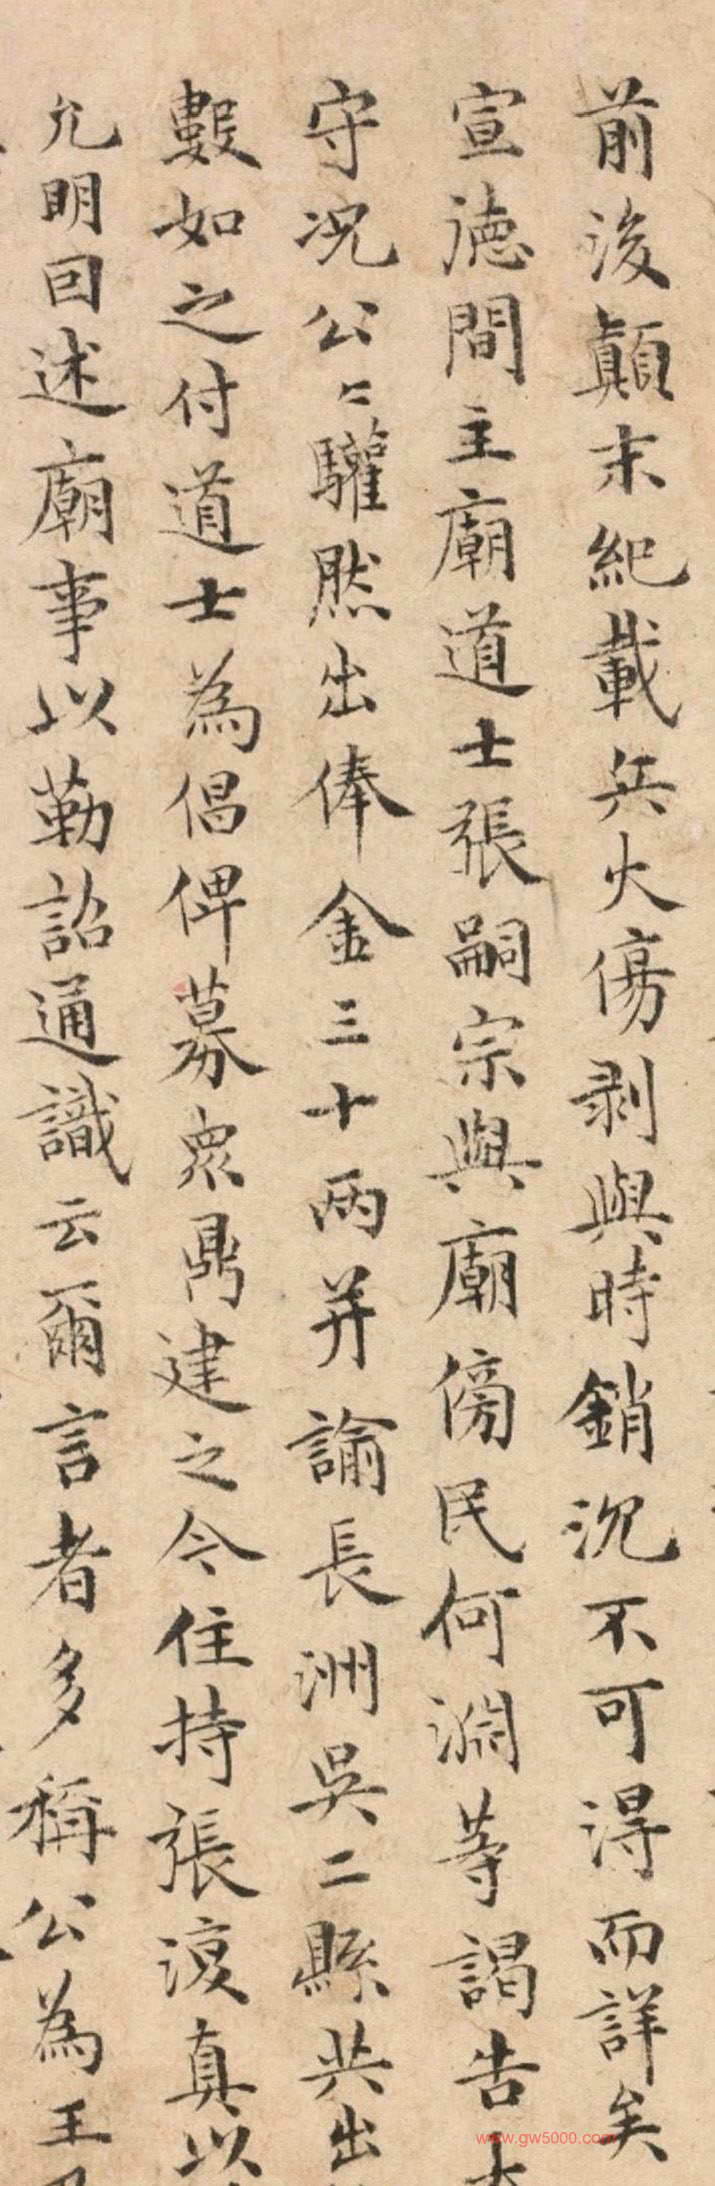 前後顛末紀載兵火傷剥與時銷沉不可得而詳矣
宣德間主廟道士張嗣宗與廟傍民何淵等謁告
守况公〻驩然出俸金三十兩并諭長洲吳二縣共出
數如之付道士為倡俾募衆鼎建之今住持張復真以
允明回述廟事以勒詔通識云爾言者多稱公為王
www.gw5000.com